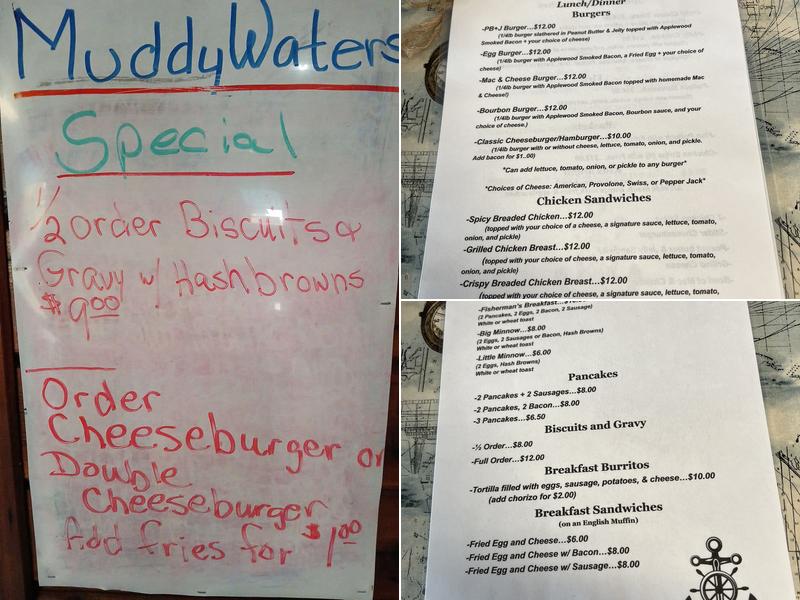 MuddyWaters
Special
1/2 order Biscuits &
Gravy w/ Hashbrowns
$9.00
Order
Cheeseburger or
Double
Cheeseburger
Add fries for $1.00
Lunch/Dinner
Burgers
-PB+J Burger...$12.00
(1/4lb burger slathered in Peanut Butter & Jelly topped with Applewood
Smoked Bacon + your choice of cheese)
-Egg Burger...$12.00
(1/4lb burger with Applewood Smoked Bacon, a Fried Egg + your choice of
cheese)
-Mac & Cheese Burger...$12.00
(1/4lb burger with Applewood Smoked Bacon topped with homemade Mac
& Cheese!)
-Bourbon Burger...$12.00
(1/4lb burger with Applewood Smoked Bacon, Bourbon sauce, and your
choice of cheese.)
-Classic Cheeseburger/Hamburger...$10.00
(1/4lb burger with or without cheese, lettuce, tomato, onion, and pickle.
Add bacon for $1..00)
*Can add lettuce, tomato, onion, or pickle to any burger*
*Choices of Cheese: American, Provolone, Swiss, or Pepper Jack*
Chicken Sandwiches
-Spicy Breaded Chicken...$12.00
(topped with your choice of cheese, a signature sauce, lettuce, tomato,
onion, and pickle)
-Grilled Chicken Breast...$12.00
(topped with your choice of cheese, a signature sauce, lettuce, tomato,
onion, and pickle)
-Crispy Breaded Chicken Breast...$12.00
(topped with your choice of cheese, a signature sauce, lettuce, tomato,
-Fisherman's Breakfast...
(2 Pancakes, 2 Eggs, 2 Bacon, 2 Sausage)
White or wheat toast
-Big Minnow...$8.00
(2 Eggs, 2 Sausages or Bacon, Hash Browns)
White or wheat toast
-Little Minnow...$6.00
(2 Eggs, Hash Browns)
White or wheat toast
Pancakes
-2 Pancakes + 2 Sausages...$8.00
-2 Pancakes, 2 Bacon...$8.00
-3 Pancakes...$6.50
Biscuits and Gravy
-½ Order...$8.00
-Full Order...$12.00
Breakfast Burritos
-Tortilla filled with eggs, sausage, potatoes, & cheese...$10.00
(add chorizo for $2.00)
Breakfast Sandwiches
(on an English Muffin)
-Fried Egg and Cheese...$6.00
-Fried Egg and Cheese w/ Bacon...$8.00
-Fried Egg and Cheese w/ Sausage...$8.00